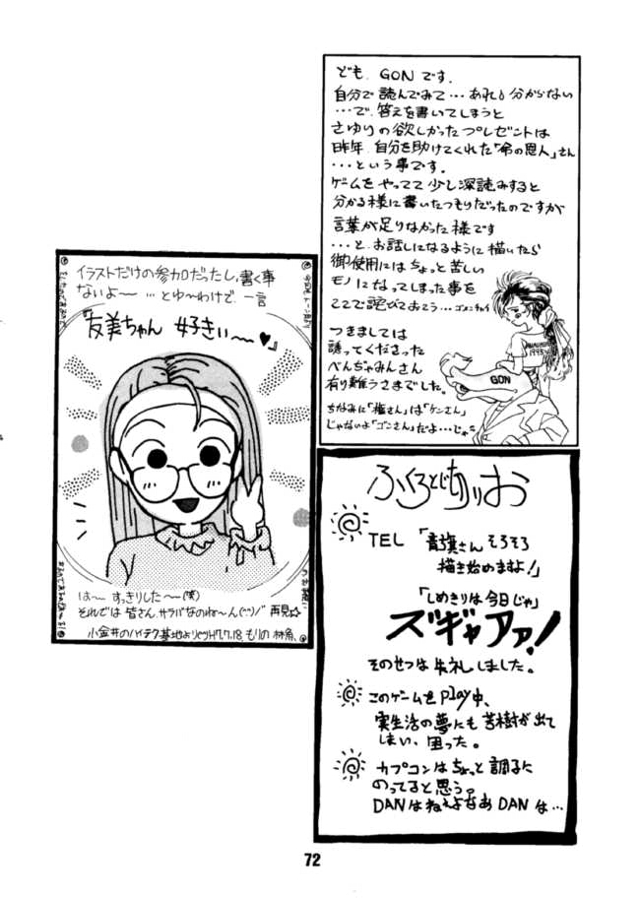 ども、GONです。
自分で読んでみて…あれ?分からない
…で、答えを書いてしまうと
さゆりの欲しかったプレゼントは
昨年、自分を助けてくれた「命の恩人」さん
…という事です。
ゲームをやってて少し深読みすると
分かる様に書いたつもりだったのですが
言葉が足りなかった様です
…と、お話しになるように描いたら
御使用にはちょっと苦しい
モノになってしまった事を
ここで詫びておこう…ゴメンナサイ
つきましては
誘ってくださった
べんぢゃみんさん
有り難うさまでした。
ちなみに「権さん」は「ケンさん」
じゃないよ「ゴンさん」だよ…じゃ
GON
イラストだけの参加だったし、書く事
ないよ〜 …とゆ〜わけで一言
『友美ちゃん 好きぃ〜♥』
は〜 すっきりした〜(笑)
それでは皆さん、サラバなのね〜ん(^^)/ 再見☆
小金井のハイテク基地より H7.7.18. もりの
ふくろとじありお
TEL「青旗さんそろそろ
描き始めますよ!」
「しめきりは今日じゃ」
ズギャアァ!
そのせつは失礼しました。
このゲームをplay中、
実生活の夢にも苦樹が出て
しまい、困った。
カプコンはちょっと調子に
のってると思う。
DANはねえよなあDANは…
72